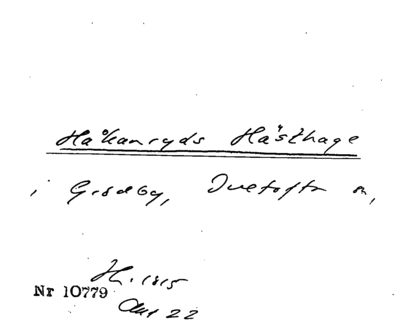 Håkanryds Hästhage
i Grödby, Ivetofta sn,
H. 1815
Nr 10779
22